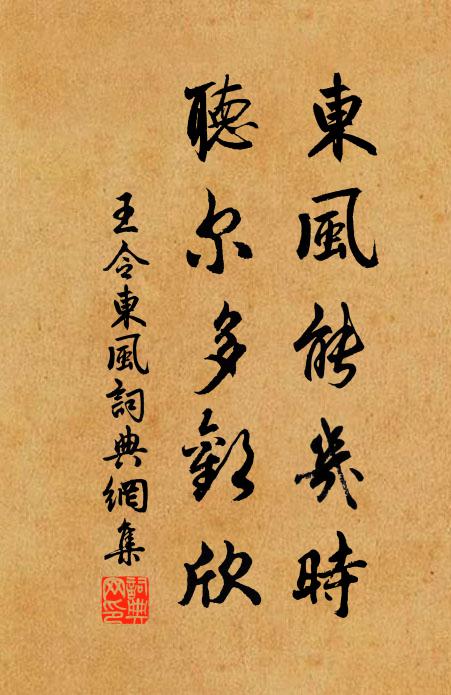 東風能幾時
聽尔多歡欣
王令東風詞典網集
詞典網印